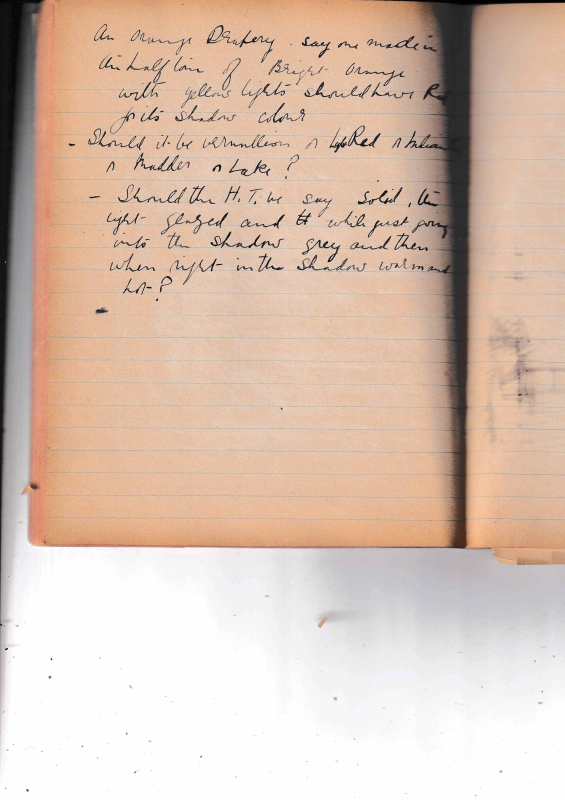 An orange Drapery. say one made in
the half tone of Bright Orange
with yellow lights should have Red
for its Shadow colour
- Should it be vermillion or Light Red or Indian
or Madder or Lake?
- Should the H.T. be say solid, the
light glazed and it while just going
into the shadow grey and then
when right in the shadow warm and
hot?
-